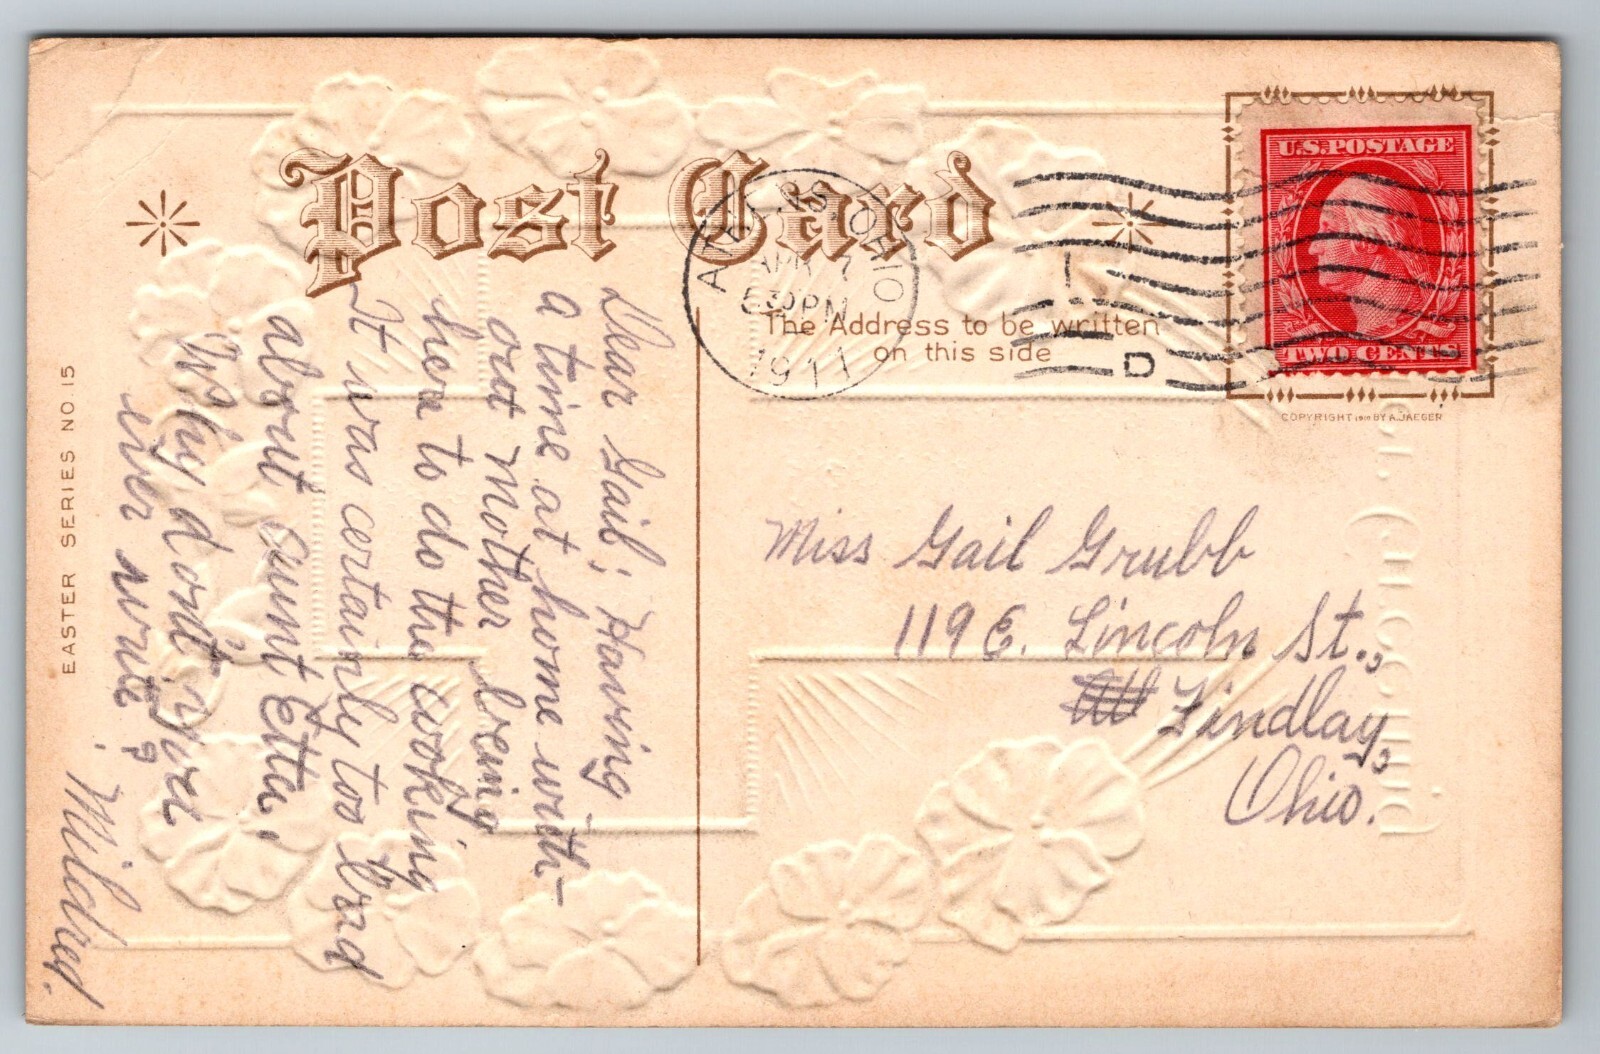 Post Card
The Address to be written
on this side
U.S. POSTAGE
TWO CENTS
COPYRIGHT 1910 BY A. JAEGER
OHIO
APR 7
530 PM
1911
D
EASTER SERIES NO. 15
Dear Gail; Having
a time at home with-
out mother being
here to do the cooking
It was certainly too bad
about Aunt Etta.
Why don't you
ever write?
Mildred.
Miss Gail Grubb
119 E. Lincoln St.,
Findlay,
Ohio.